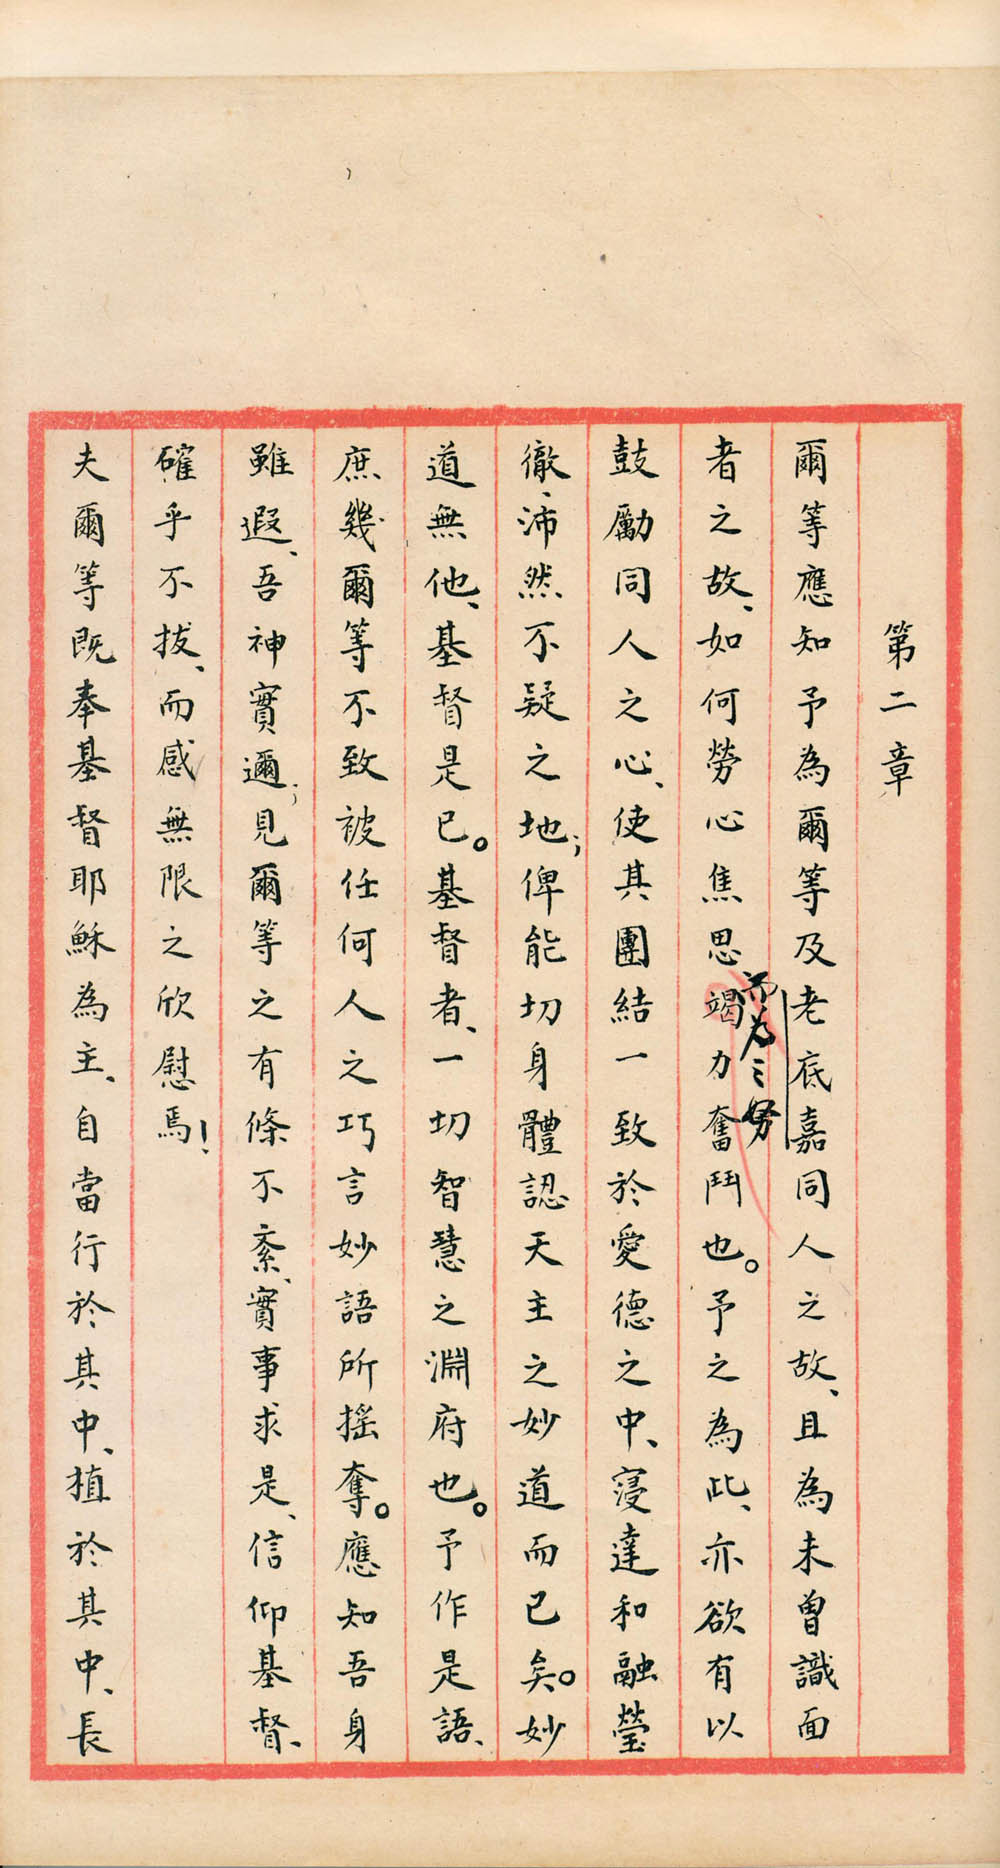 第二章
爾等應知予為爾等及老底嘉同人之故、且為未曾識面
者之故、如何勞心焦思竭力奮鬥也。予之為此、亦欲有以
而為之努
鼓勵同人之心、使其團結一致於愛德之中、寖達和融瑩
徹、沛然不疑之地；俾能切身體認天主之妙道而已矣。妙
道無他、基督是已。基督者、一切智慧之淵府也。予作是語、
庶幾爾等不致被任何人之巧言妙語所搖奪。應知吾身
雖遐、吾神實邇；見爾等之有條不紊、實事求是、信仰基督、
確乎不拔、而感無限之欣慰焉！
夫爾等既奉基督耶穌為主、自當行於其中、植於其中、長